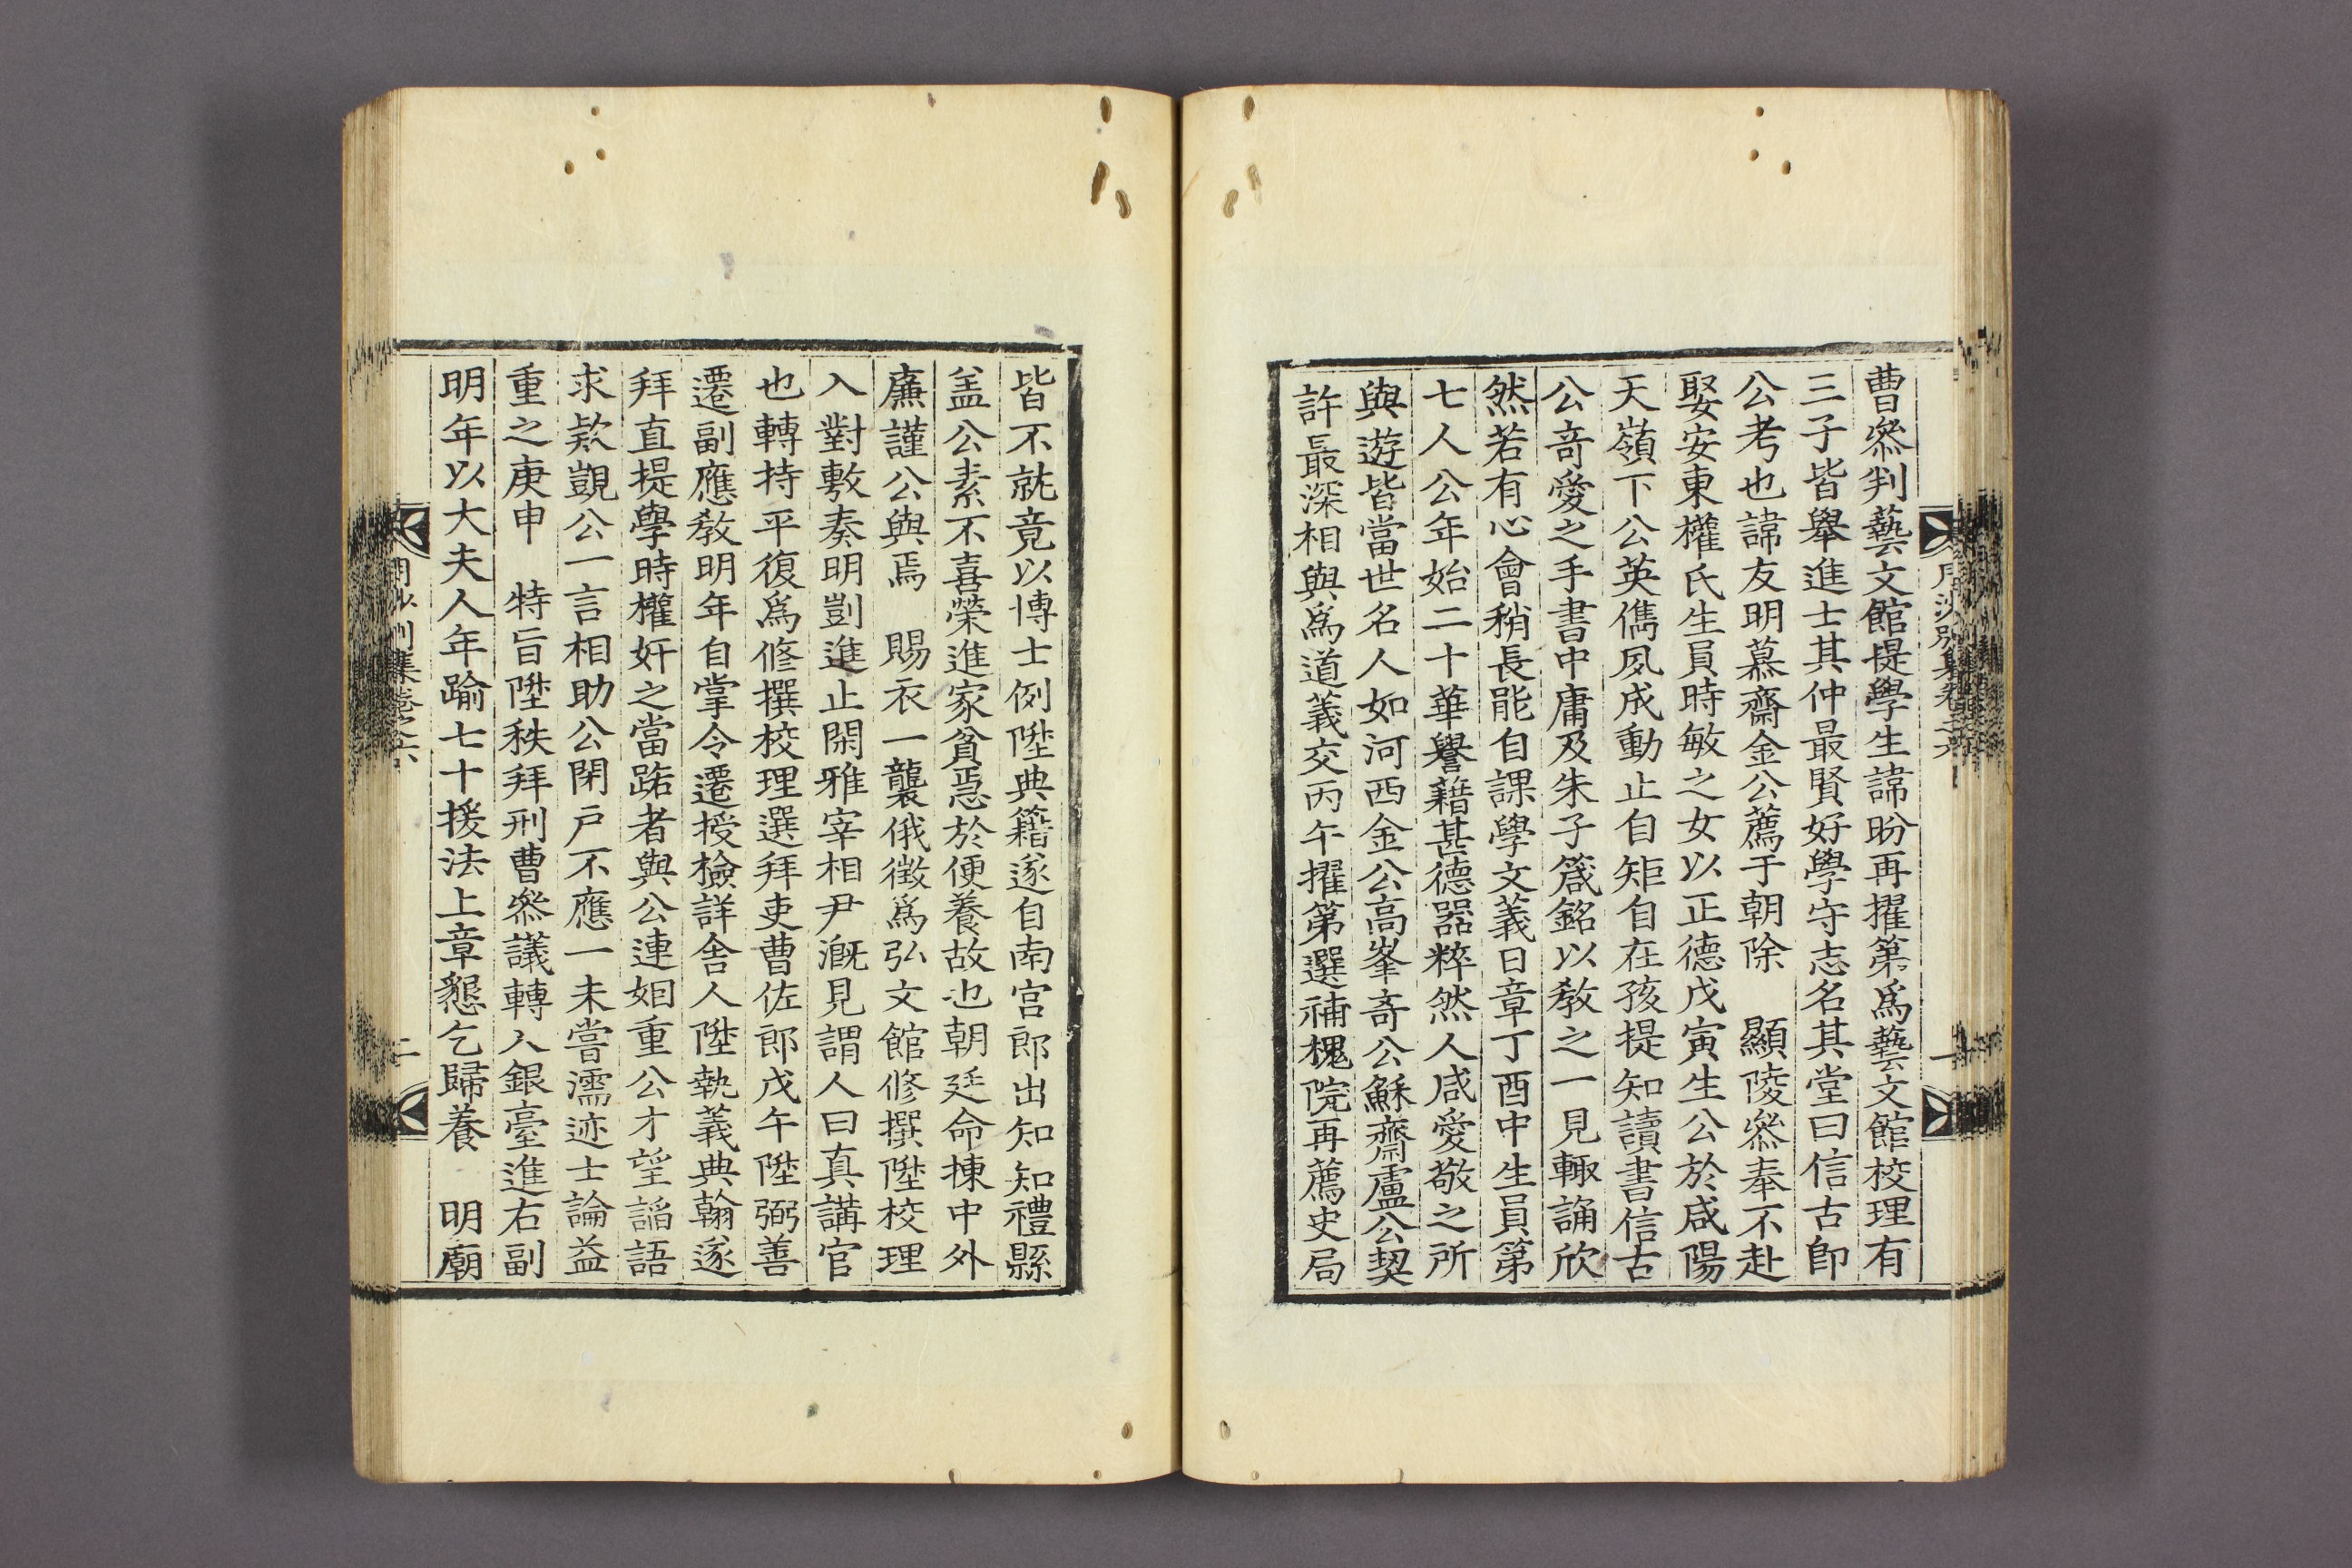 月沙別集卷之六
曹叅判藝文館提學生諱昐再擢第爲藝文館校理有
三子皆舉進士其仲最賢好學守志名其堂曰信古卽
公考也諱友明慕齋金公薦于朝除 顯陵叅奉不赴
娶安東權氏生員時敏之女以正德戊寅生公於咸陽
天嶺下公英儁夙成動止自矩自在孩提知讀書信古
公奇愛之手書中庸及朱子箴銘以教之一見輒誦欣
然若有心會稍長能自課學文義日章丁酉中生員第
七人公年始二十華譽藉甚德器粹然人咸愛敬之所
與遊皆當世名人如河西金公高峯奇公穌齋盧公契
許最深相與爲道義交丙午擢第選補槐院再薦史局
皆不就竟以博士例陞典籍遂自南宮郎出知知禮縣
盖公素不喜榮進家貧急於便養故也朝廷命揀中外
廉謹公與焉 賜衣一襲俄徵爲弘文館修撰陞校理
入對敷奏明剴進止閑雅宰相尹漑見謂人曰真講官
也轉持平復爲修撰校理選拜吏曹佐郎戊午陞弼善
遷副應教明年自掌令遷授檢詳舍人陞執義典翰遂
拜直提學時權奸之當路者與公連姻重公才望謟語
求欵覬公一言相助公閉戶不應一未嘗濡迹士論益
重之庚申 特旨陞秩拜刑曹叅議轉入銀臺進右副
明年以大夫人年踰七十援法上章懇乞歸養 明廟
集卷之六
二